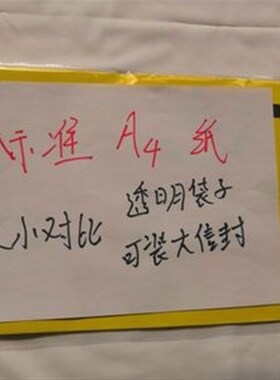 标准 A4 纸
小对比
透明袋子
可装大信封